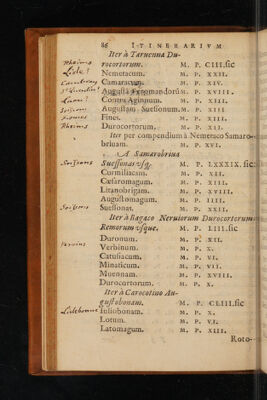 86 ITINERARIVM
Iter à Taruenna Du-
rocortorum. M. P. CIII. sic
Nemetacum. M. P. XXII.
Camaracum. M. P. XIV.
Augusta Veromandorũ M. P. XVIII.
Contra Aginnum. M. P. XIII.
Augustam Suessonum. M. P. XII
Fines. M. P. XIII.
Durocortorum. M. P. XII.
Iter per compendium à Nemetaco Samaro-
briuam. M. P. XVI.
A Samarobriua
Suessonas vsq. M. P. LXXXIX. sic
Curmiliacam. M. P. XII.
Cæsaromagum. M. P. XIII.
Litanobrigam. M. P. XVIII.
Augustomagum. M. P. IIII.
Suessonas. M. P. XXII.
Iter à Bagaco Neruiorum Durocortorum
Remorum vsque. M. P. LIII. sic
Duronum. M. P. XII.
Verbinum. M. P. X.
Catusiacum. M. P. VI.
Minaticum. M. P. VII.
Muennam. M. P. XVIII.
Durocortorum. M. P. X.
Iter à Carocotino Au-
gustobonam. M. P. CLIII. sic
Iuliobonam. M. P. X.
Lotum. M. P. VI.
Latomagum. M. P. XIII.
Roto-
Soissons
Soissons
Lislebonne